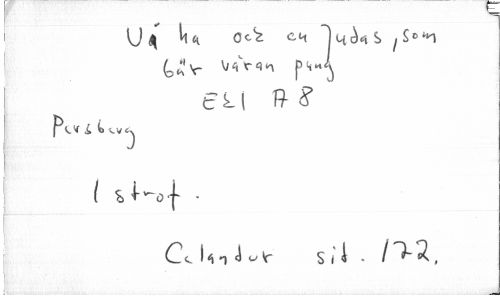 Vi ha ock en Judas, som
bär våran pung
EÖ1 A8
Persberg
1 strof.
Celander sid. 172.